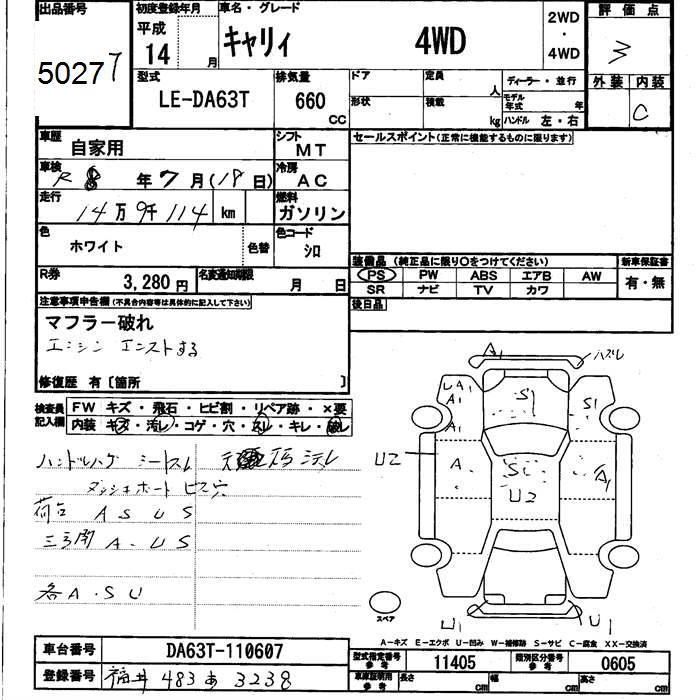 出品番号
初度登録年月
車名・グレード
評価点
平成
14 月
キャリィ 4WD
2WD
・
4WD
3
50277
型式
排気量
ドア
定員 人
ディーラー・並行
外装
内装
LE-DA63T
660 CC
形状
積載 kg
モデル年式 年
ハンドル 左・右
C
車歴
自家用
シフト
MT
セールスポイント(正常に機能するものに限ります)
車検
R 8 年 7月(18日)
冷房
AC
走行
14万9千114 km
燃料
ガソリン
色
ホワイト
色替
色コード
シロ
装備品 (純正品に限り〇をつけてください)
新車保証書
PS PW ABS エアB AW
有・無
SR ナビ TV カワ
R券
3,280円
名変通知期限
月 日
後日品
注意事項申告欄(不具合内容等は具体的に記入して下さい)
マフラー破れ
エンジン エンストする
修復歴 有 〔箇所 〕
検査員記入欄
FW キズ・飛石・ヒビ割・リペア跡・×要
内装 キズ・汚レ・コゲ・穴・スレ・キレ・破レ
ハンドルハゲ シートスレ
ダッシュボード ビス穴
荷台 A S U S
三方開 A・U S
各A・S U
A1
ハズレ
U A1
A1
A1
S1
S1
U2
A
S1
U2
A1
スペア
U1
U1
A−キズ E−エクボ U−凹み W−補修跡 S−サビ C−腐食 XX−交換済
車台番号
DA63T-110607
型式指定番号
参考
11405
類別区分番号
参考
0605
登録番号
福井 483 あ 3238
車庫証明用
参考
長さ cm
幅 cm
高さ cm